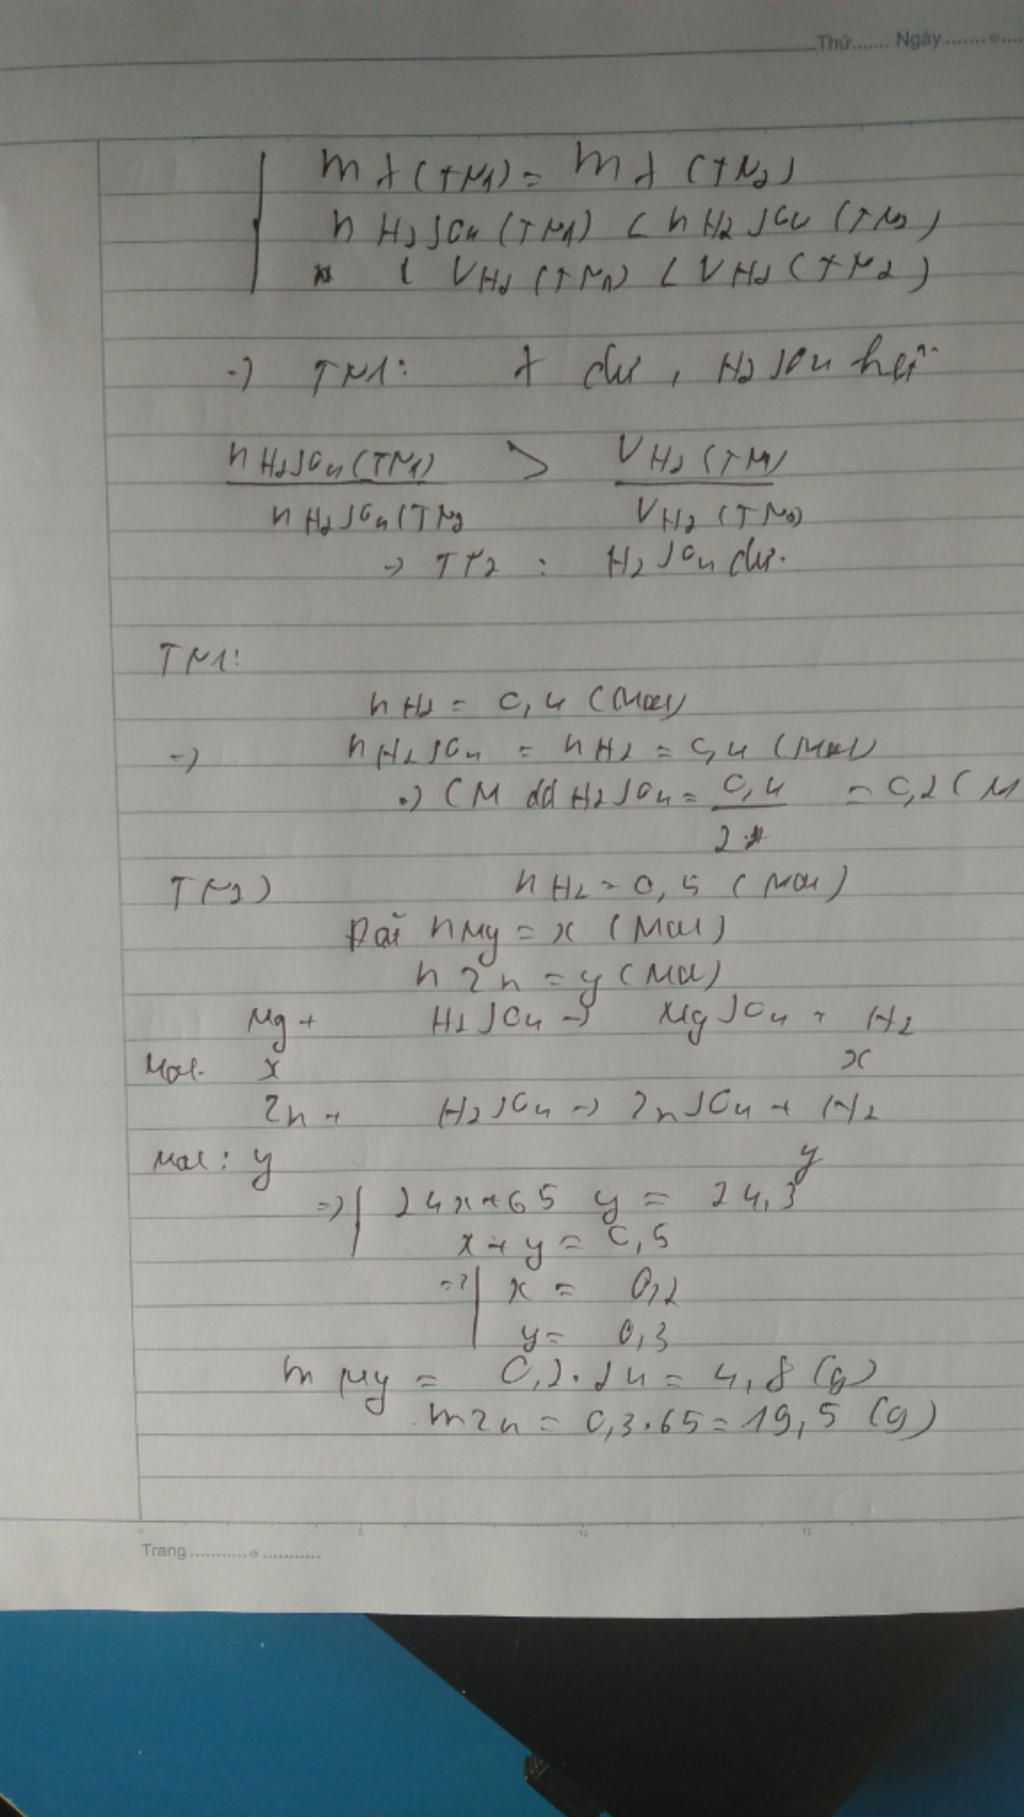 Thứ....... Ngày ........
m X (TN1) = m X (TN2)
n H2SO4 (TN1) < n H2SO4 (TN2)
( VH2 (TN1) < VH2 (TN2)
=> TN1: X dư, H2SO4 hết
n H2SO4 (TN1) > VH2 (TN1)
n H2SO4 (TN2 VH2 (TN2)
=> TN2 : H2SO4 dư.
TN1:
n H2 = 0,4 (Mol)
=> n H2SO4 = n H2 = 0,4 (Mol)
=> CM dd H2SO4 = 0,4 = 0,2 (M
2
TN2) n H2 = 0,5 (Mol)
Đặt n Mg = x (Mol)
n Zn = y (Mol)
Mg + H2SO4 -> MgSO4 + H2
Mol: x x
Zn + H2SO4 -> ZnSO4 + H2
Mol: y y
=> | 24x + 65y = 24,3
x + y = 0,5
=> | x = 0,2
y = 0,3
m Mg = 0,2.24 = 4,8 (g)
m Zn = 0,3.65 = 19,5 (g)
0 5 10 15
Trang ......................